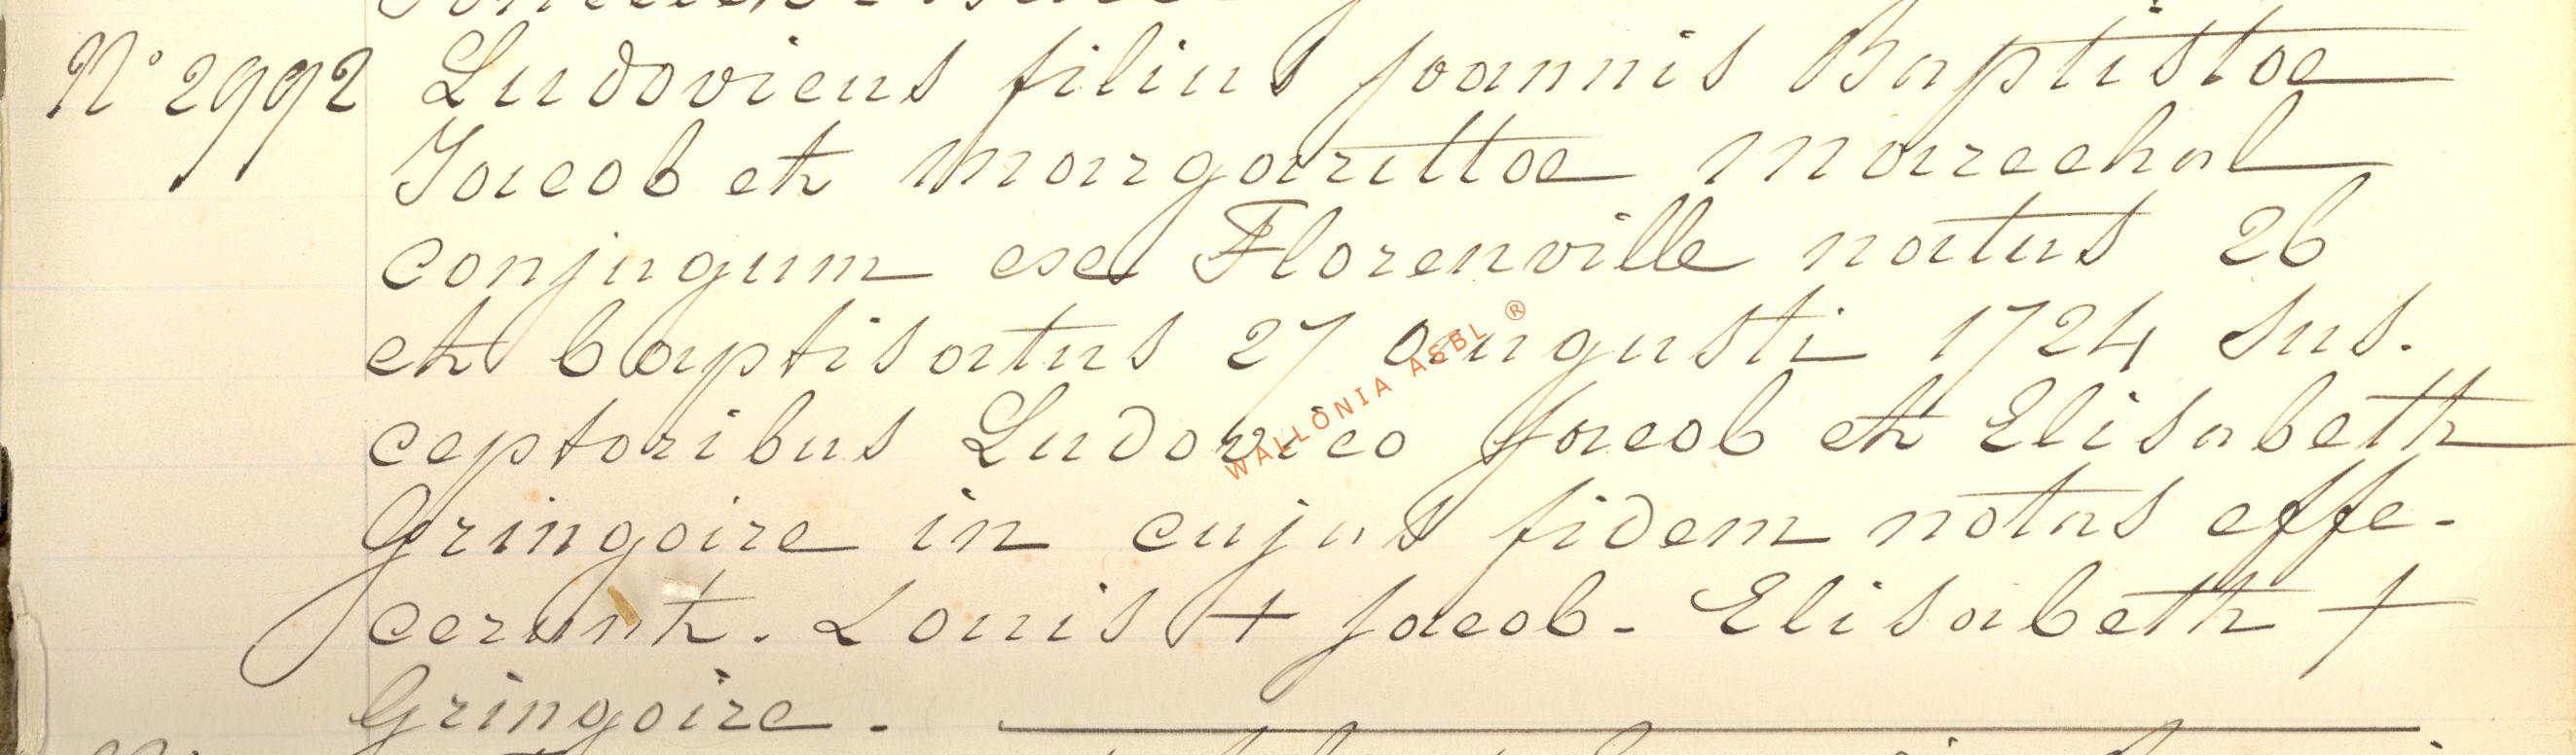 N° 2992 Ludovicus filius Joannis Baptistae
Jacob et Margarittae Marechal
conjugum ex Florenville natus 26
et baptisatus 27 augusti 1724 sus.
ceptoribus Ludovico Jacob et Elisabeth
Gringoire in cujus fidem notas effe-
cerunt. Louis + Jacob - Elisabeth +
Gringoire.
WALLONIA ASBL ®